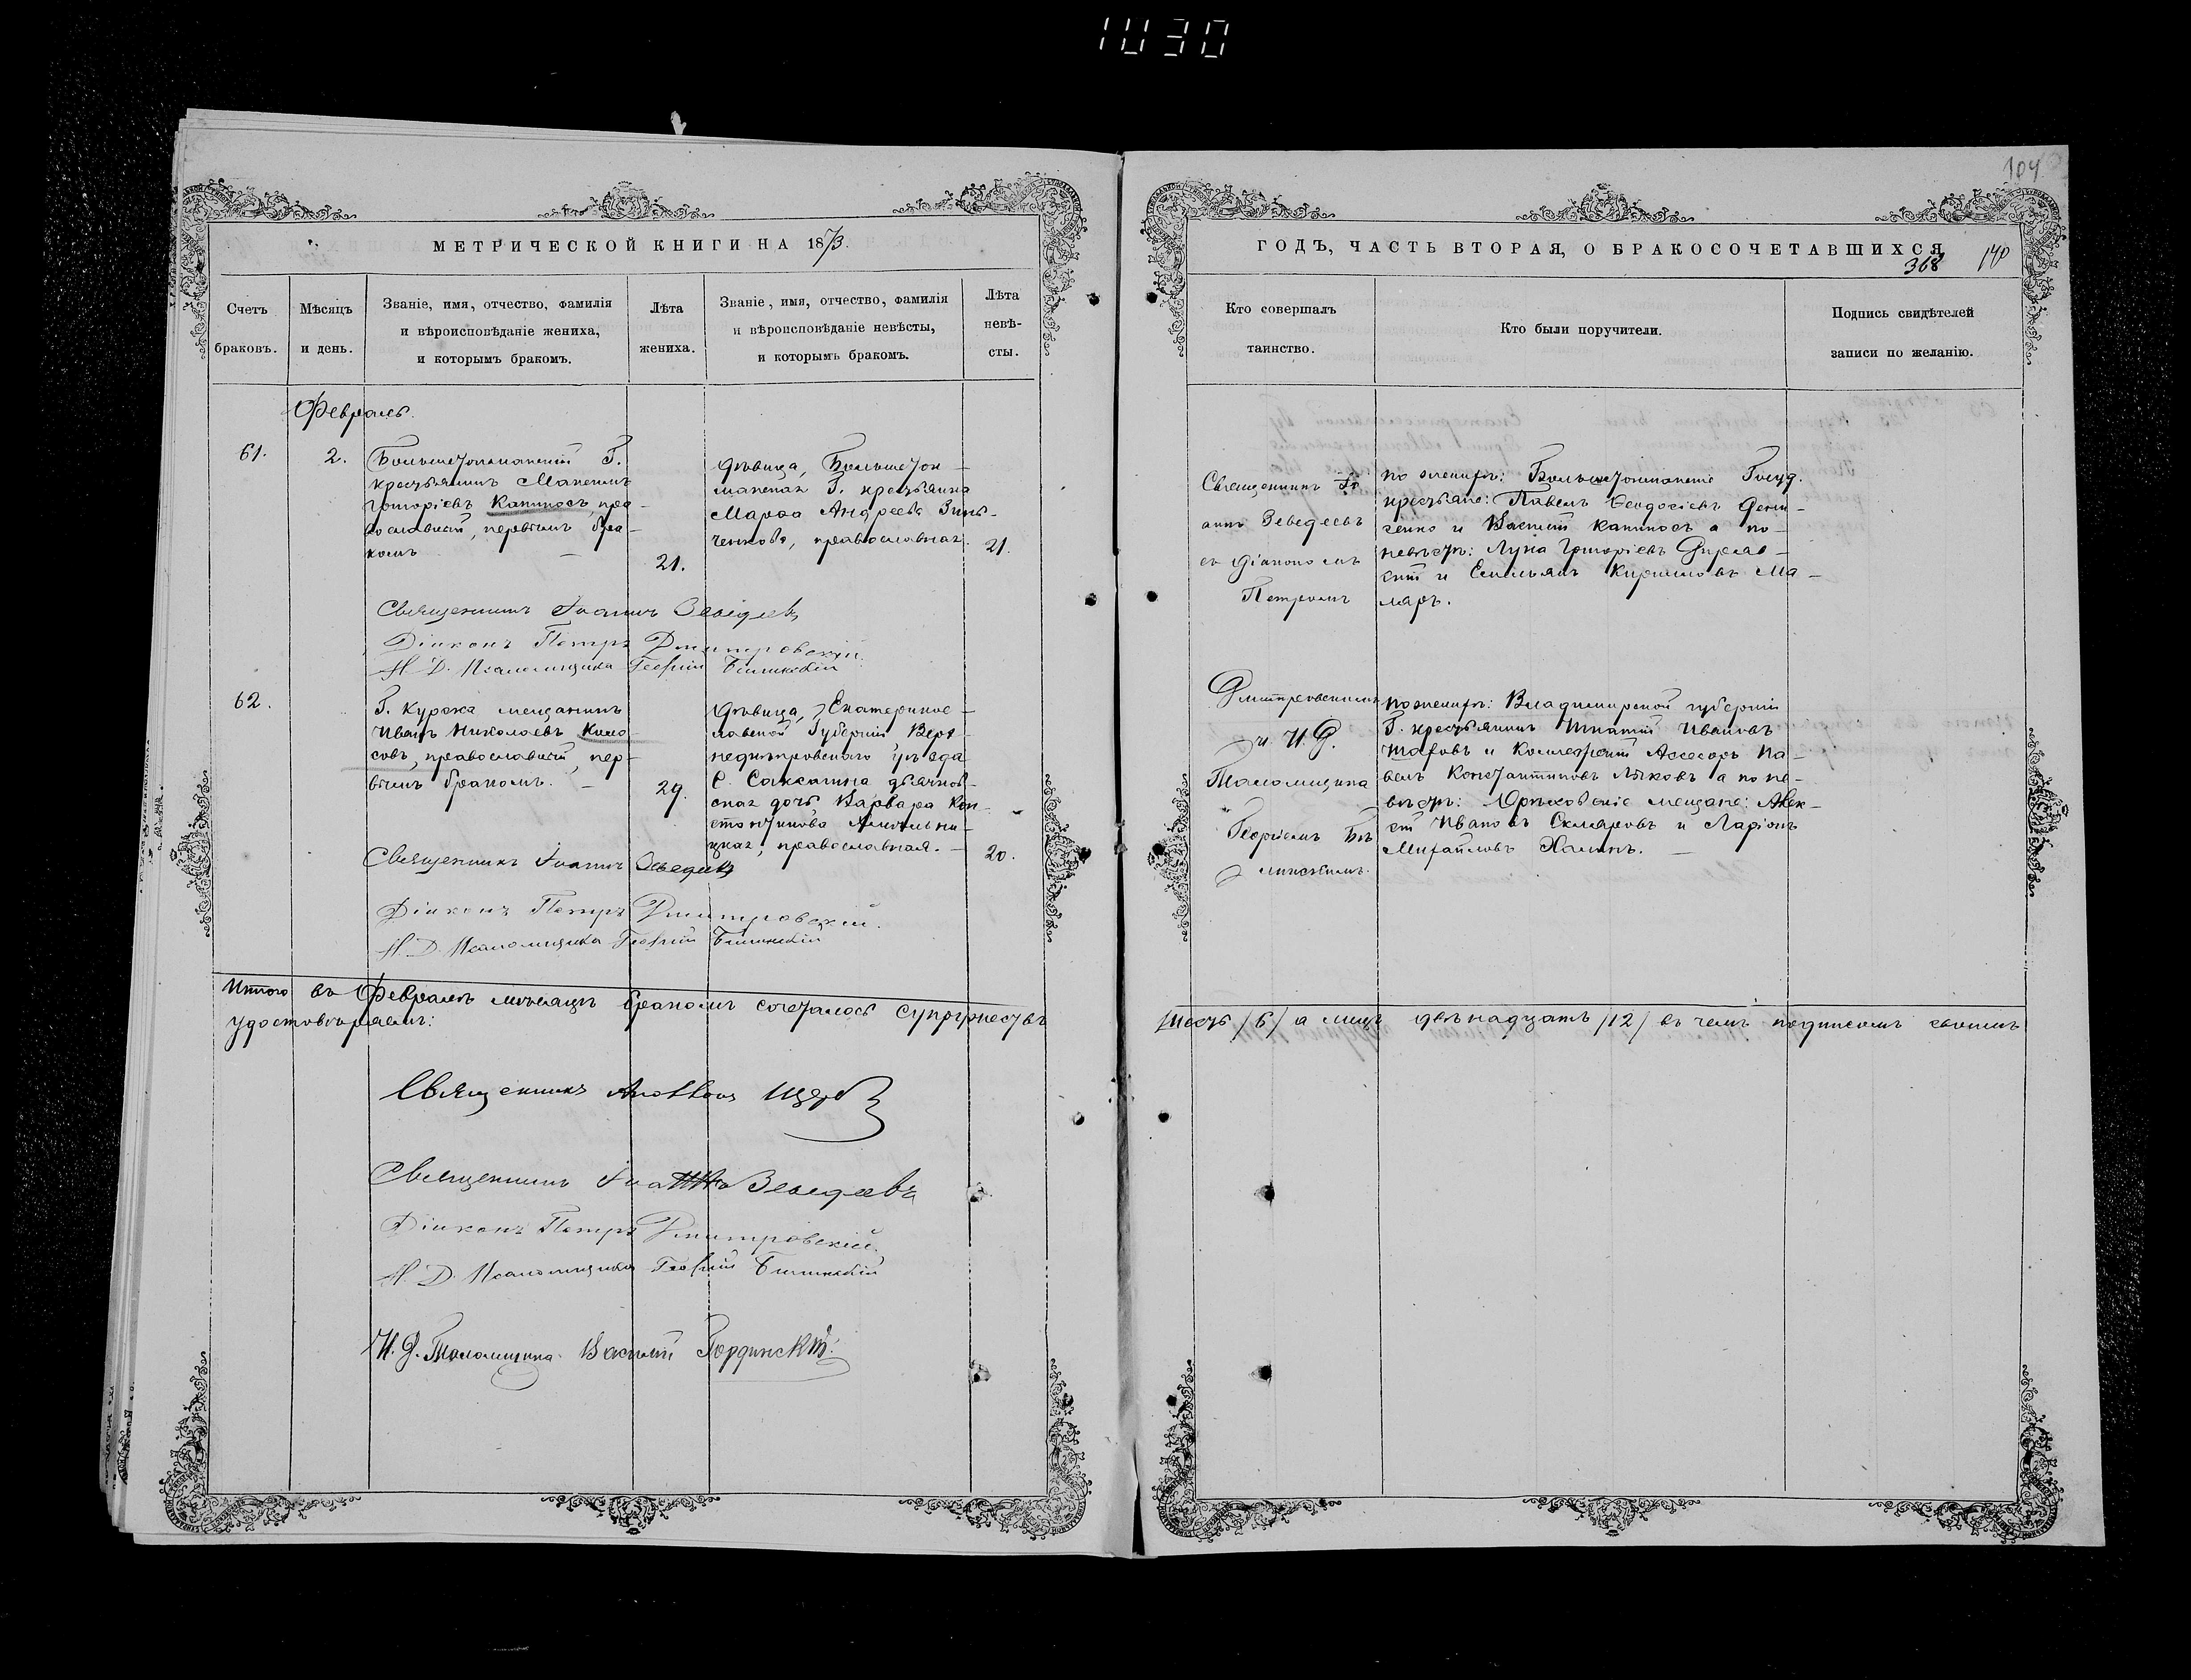 1030
104
МЕТРИЧЕСКОЙ КНИГИ НА 1873.
Счетъ браковъ.
Мѣсяцъ и день.
Званіе, имя, отчество, фамилія
и вѣроисповѣданіе жениха,
и которымъ бракомъ.
Лѣта
жениха.
Званіе, имя, отчество, фамилія
и вѣроисповѣданіе невѣсты,
и которымъ бракомъ.
Лѣта
невѣ-
сты.
Февраль.
61.
2.
Большетокмакскій Г.
крестьянинъ
Григорієвъ Капиносъ, пра-
вославный, первымъ бра-
комъ
21.
дѣвица, Большеток-
макская Г. крестьянка
Марѳа Андреева Зин-
ченкова, православная.
21.
Священникъ Іоаннъ Зеведеевъ
Діаконъ Петръ Дмитровскій.
И. Д. Псаломщика Георгій
62.
Г. Курска мещанинъ
Иванъ Николаевъ Коло-
совъ, православный, пер-
вымъ бракомъ.
29.
дѣвица, Екатеринос-
лавской Губерніи Верх-
неднѣпровскаго уѣзда
С. Саксагана дьячков-
ская дочь Варвара Кон-
стантинова
православная.
20.
Священникъ Іоаннъ Зеведеевъ
Діаконъ Петръ Дмитровскій.
И. Д. Псаломщика Георгій
Итого въ Февралѣ мѣсяцѣ бракомъ сочеталось супружествъ
удостовѣряемъ:
Священникъ
Священникъ Іоаннъ Зеведеевъ
Діаконъ Петръ Дмитровскій
И. Д. Псаломщика Георгій
И. Д. Псаломщика Василій Гординскій.
ГОДЪ, ЧАСТЬ ВТОРАЯ, О БРАКОСОЧЕТАВШИХСЯ
368
140
Кто совершалъ
таинство.
Кто были поручители.
Подпись свидѣтелей
записи по желанію.
Священникъ Іо-
аннъ Зеведеевъ
съ діакономъ
Петромъ
по женихѣ: Большетокмакскіе Госуд.
крестьяне: Павелъ Ѳеодосіевъ Дени-
сенко и Василій Капиносъ а по
невѣстѣ: Лука Григорієвъ
и Емельянъ Кирилловъ Ма-
ляръ.
Дмитровскимъ
и И. Д.
Псаломщика
Георгіемъ Бѣ-
по женихѣ: Владимирской губерніи
Г. крестьянинъ Игнатій Ивановъ
и Коллежскій Асесоръ Па-
велъ Константиновъ а по не-
вѣстѣ: Орѣховскіе мещане: Алек-
сѣй Ивановъ Скляровъ и Ларіонъ
Михайловъ
шесть /6/ а лицъ двѣнадцать /12/ въ чемъ подписомъ своимъ